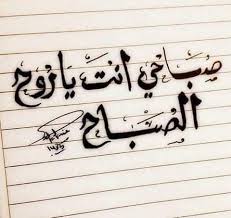 صباحي انت ياروح
الصباح